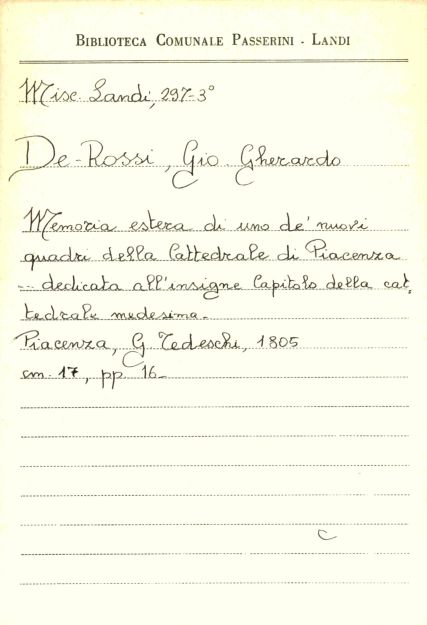 BIBLIOTECA COMUNALE PASSERINI - LANDI
Misc. Landi, 297-3°
De-Rossi, Gio. Gherardo
Memoria estera di uno de' nuovi
quadri della Cattedrale di Piacenza
... dedicata all'insigne Capitolo della cat.
tedrale medesima.
Piacenza, G. Tedeschi, 1805
cm. 17, pp. 16_
C